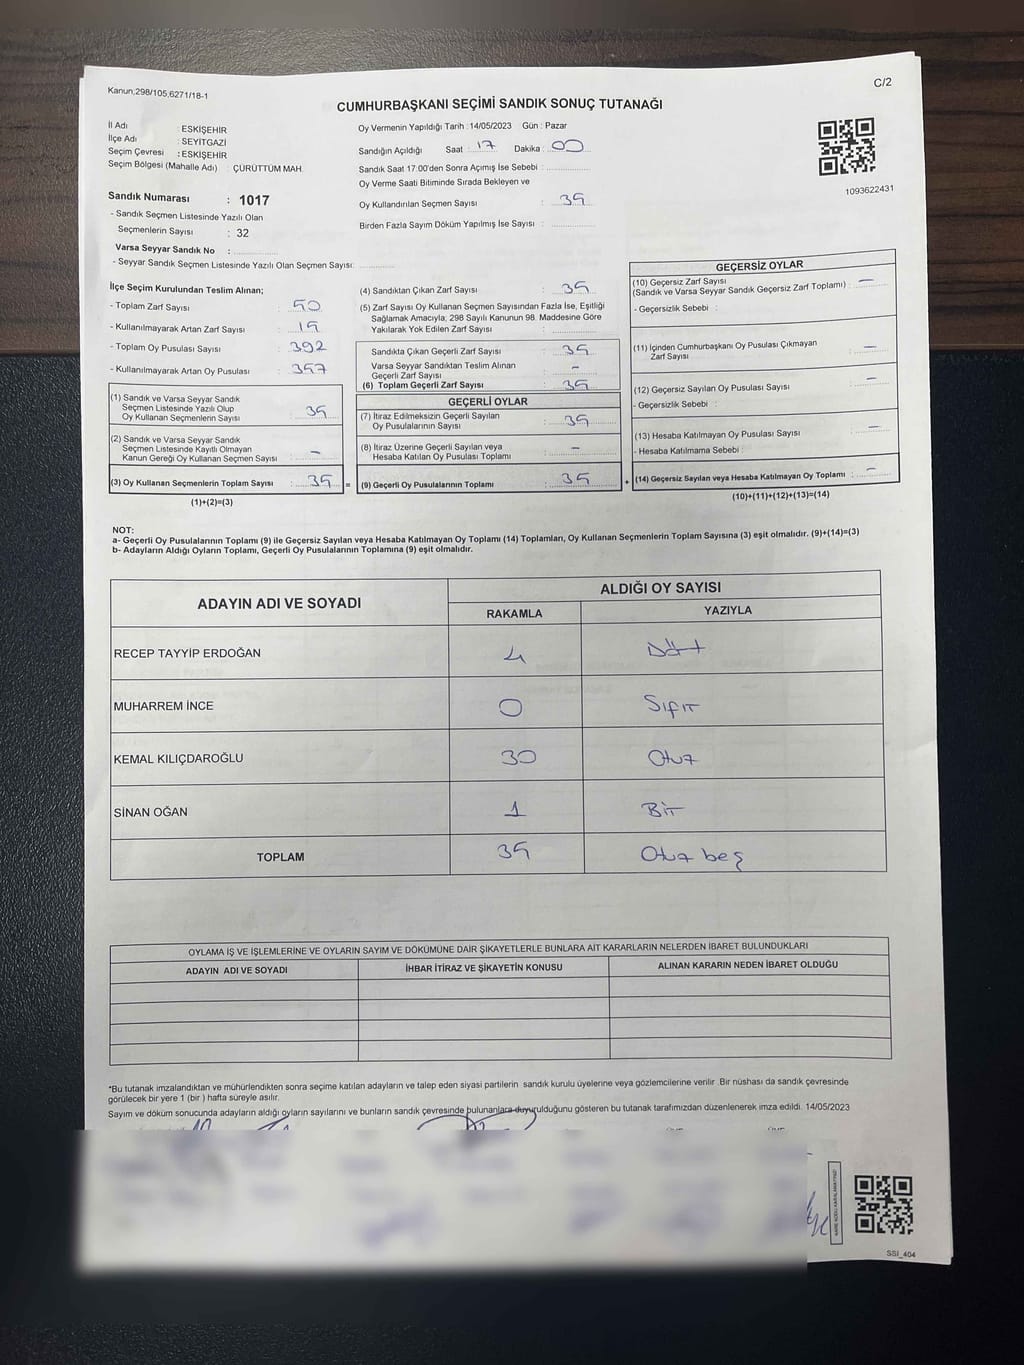 Kanun,298/105,6271/18-1
C/2
CUMHURBAŞKANI SEÇİMİ SANDIK SONUÇ TUTANAĞI
İl Adı : ESKİŞEHİR
İlçe Adı : SEYİTGAZİ
Seçim Çevresi : ESKİŞEHİR
Seçim Bölgesi (Mahalle Adı) : ÇÜRÜTTÜM MAH.
Oy Vermenin Yapıldığı Tarih : 14/05/2023 Gün : Pazar
Sandığın Açıldığı Saat : 17 Dakika : 00
Sandık Saat 17:00'den Sonra Açımış İse Sebebi :
Oy Verme Saati Bitiminde Sırada Bekleyen ve
Oy Kullandırılan Seçmen Sayısı : 35
Birden Fazla Sayım Döküm Yapılmış İse Sayısı :
1093622431
Sandık Numarası : 1017
- Sandık Seçmen Listesinde Yazılı Olan
Seçmenlerin Sayısı : 32
Varsa Seyyar Sandık No :
- Seyyar Sandık Seçmen Listesinde Yazılı Olan Seçmen Sayısı:
İlçe Seçim Kurulundan Teslim Alınan;
- Toplam Zarf Sayısı : 50
- Kullanılmayarak Artan Zarf Sayısı : 15
- Toplam Oy Pusulası Sayısı : 392
- Kullanılmayarak Artan Oy Pusulası : 357
(1) Sandık ve Varsa Seyyar Sandık
Seçmen Listesinde Yazılı Olup
Oy Kullanan Seçmenlerin Sayısı : 35
(2) Sandık ve Varsa Seyyar Sandık
Seçmen Listesinde Kayıtlı Olmayan
Kanun Gereği Oy Kullanan Seçmen Sayısı : -
(3) Oy Kullanan Seçmenlerin Toplam Sayısı : 35 =
(1)+(2)=(3)
(4) Sandıktan Çıkan Zarf Sayısı : 35
(5) Zarf Sayısı Oy Kullanan Seçmen Sayısından Fazla İse, Eşitliği
Sağlamak Amacıyla; 298 Sayılı Kanunun 98. Maddesine Göre
Yakılarak Yok Edilen Zarf Sayısı :
Sandıkta Çıkan Geçerli Zarf Sayısı : 35
Varsa Seyyar Sandıktan Teslim Alınan
Geçerli Zarf Sayısı : -
(6) Toplam Geçerli Zarf Sayısı : 35
GEÇERLİ OYLAR
(7) İtiraz Edilmeksizin Geçerli Sayılan
Oy Pusulalarının Sayısı : 35
(8) İtiraz Üzerine Geçerli Sayılan veya
Hesaba Katılan Oy Pusulası Toplamı : -
(9) Geçerli Oy Pusulalarının Toplamı : 35 +
GEÇERSİZ OYLAR
(10) Geçersiz Zarf Sayısı
(Sandık ve Varsa Seyyar Sandık Geçersiz Zarf Toplamı) : -
- Geçersizlik Sebebi :
(11) İçinden Cumhurbaşkanı Oy Pusulası Çıkmayan
Zarf Sayısı : -
(12) Geçersiz Sayılan Oy Pusulası Sayısı : -
- Geçersizlik Sebebi :
(13) Hesaba Katılmayan Oy Pusulası Sayısı : -
- Hesaba Katılmama Sebebi :
(14) Geçersiz Sayılan veya Hesaba Katılmayan Oy Toplamı : -
(10)+(11)+(12)+(13)=(14)
NOT:
a- Geçerli Oy Pusulalarının Toplamı (9) ile Geçersiz Sayılan veya Hesaba Katılmayan Oy Toplamı (14) Toplamları, Oy Kullanan Seçmenlerin Toplam Sayısına (3) eşit olmalıdır. (9)+(14)=(3)
b- Adayların Aldığı Oyların Toplamı, Geçerli Oy Pusulalarının Toplamına (9) eşit olmalıdır.
ADAYIN ADI VE SOYADI
ALDIĞI OY SAYISI
RAKAMLA YAZIYLA
RECEP TAYYİP ERDOĞAN 4 Dört
MUHARREM İNCE 0 Sıfır
KEMAL KILIÇDAROĞLU 30 Otuz
SİNAN OĞAN 1 Bir
TOPLAM 35 Otuz beş
OYLAMA İŞ VE İŞLEMLERİNE VE OYLARIN SAYIM VE DÖKÜMÜNE DAİR ŞİKAYETLERLE BUNLARA AİT KARARLARIN NELERDEN İBARET BULUNDUKLARI
ADAYIN ADI VE SOYADI İHBAR İTİRAZ VE ŞİKAYETİN KONUSU ALINAN KARARIN NEDEN İBARET OLDUĞU
*Bu tutanak imzalandıktan ve mühürlendikten sonra seçime katılan adayların ve talep eden siyasi partilerin sandık kurulu üyelerine veya gözlemcilerine verilir .Bir nüshası da sandık çevresinde
görülecek bir yere 1 (bir ) hafta süreyle asılır.
Sayım ve döküm sonucunda adayların aldığı oyların sayılarını ve bunların sandık çevresinde bulunanlara duyurulduğunu gösteren bu tutanak tarafımızdan düzenlenerek imza edildi. 14/05/2023
SSI_404